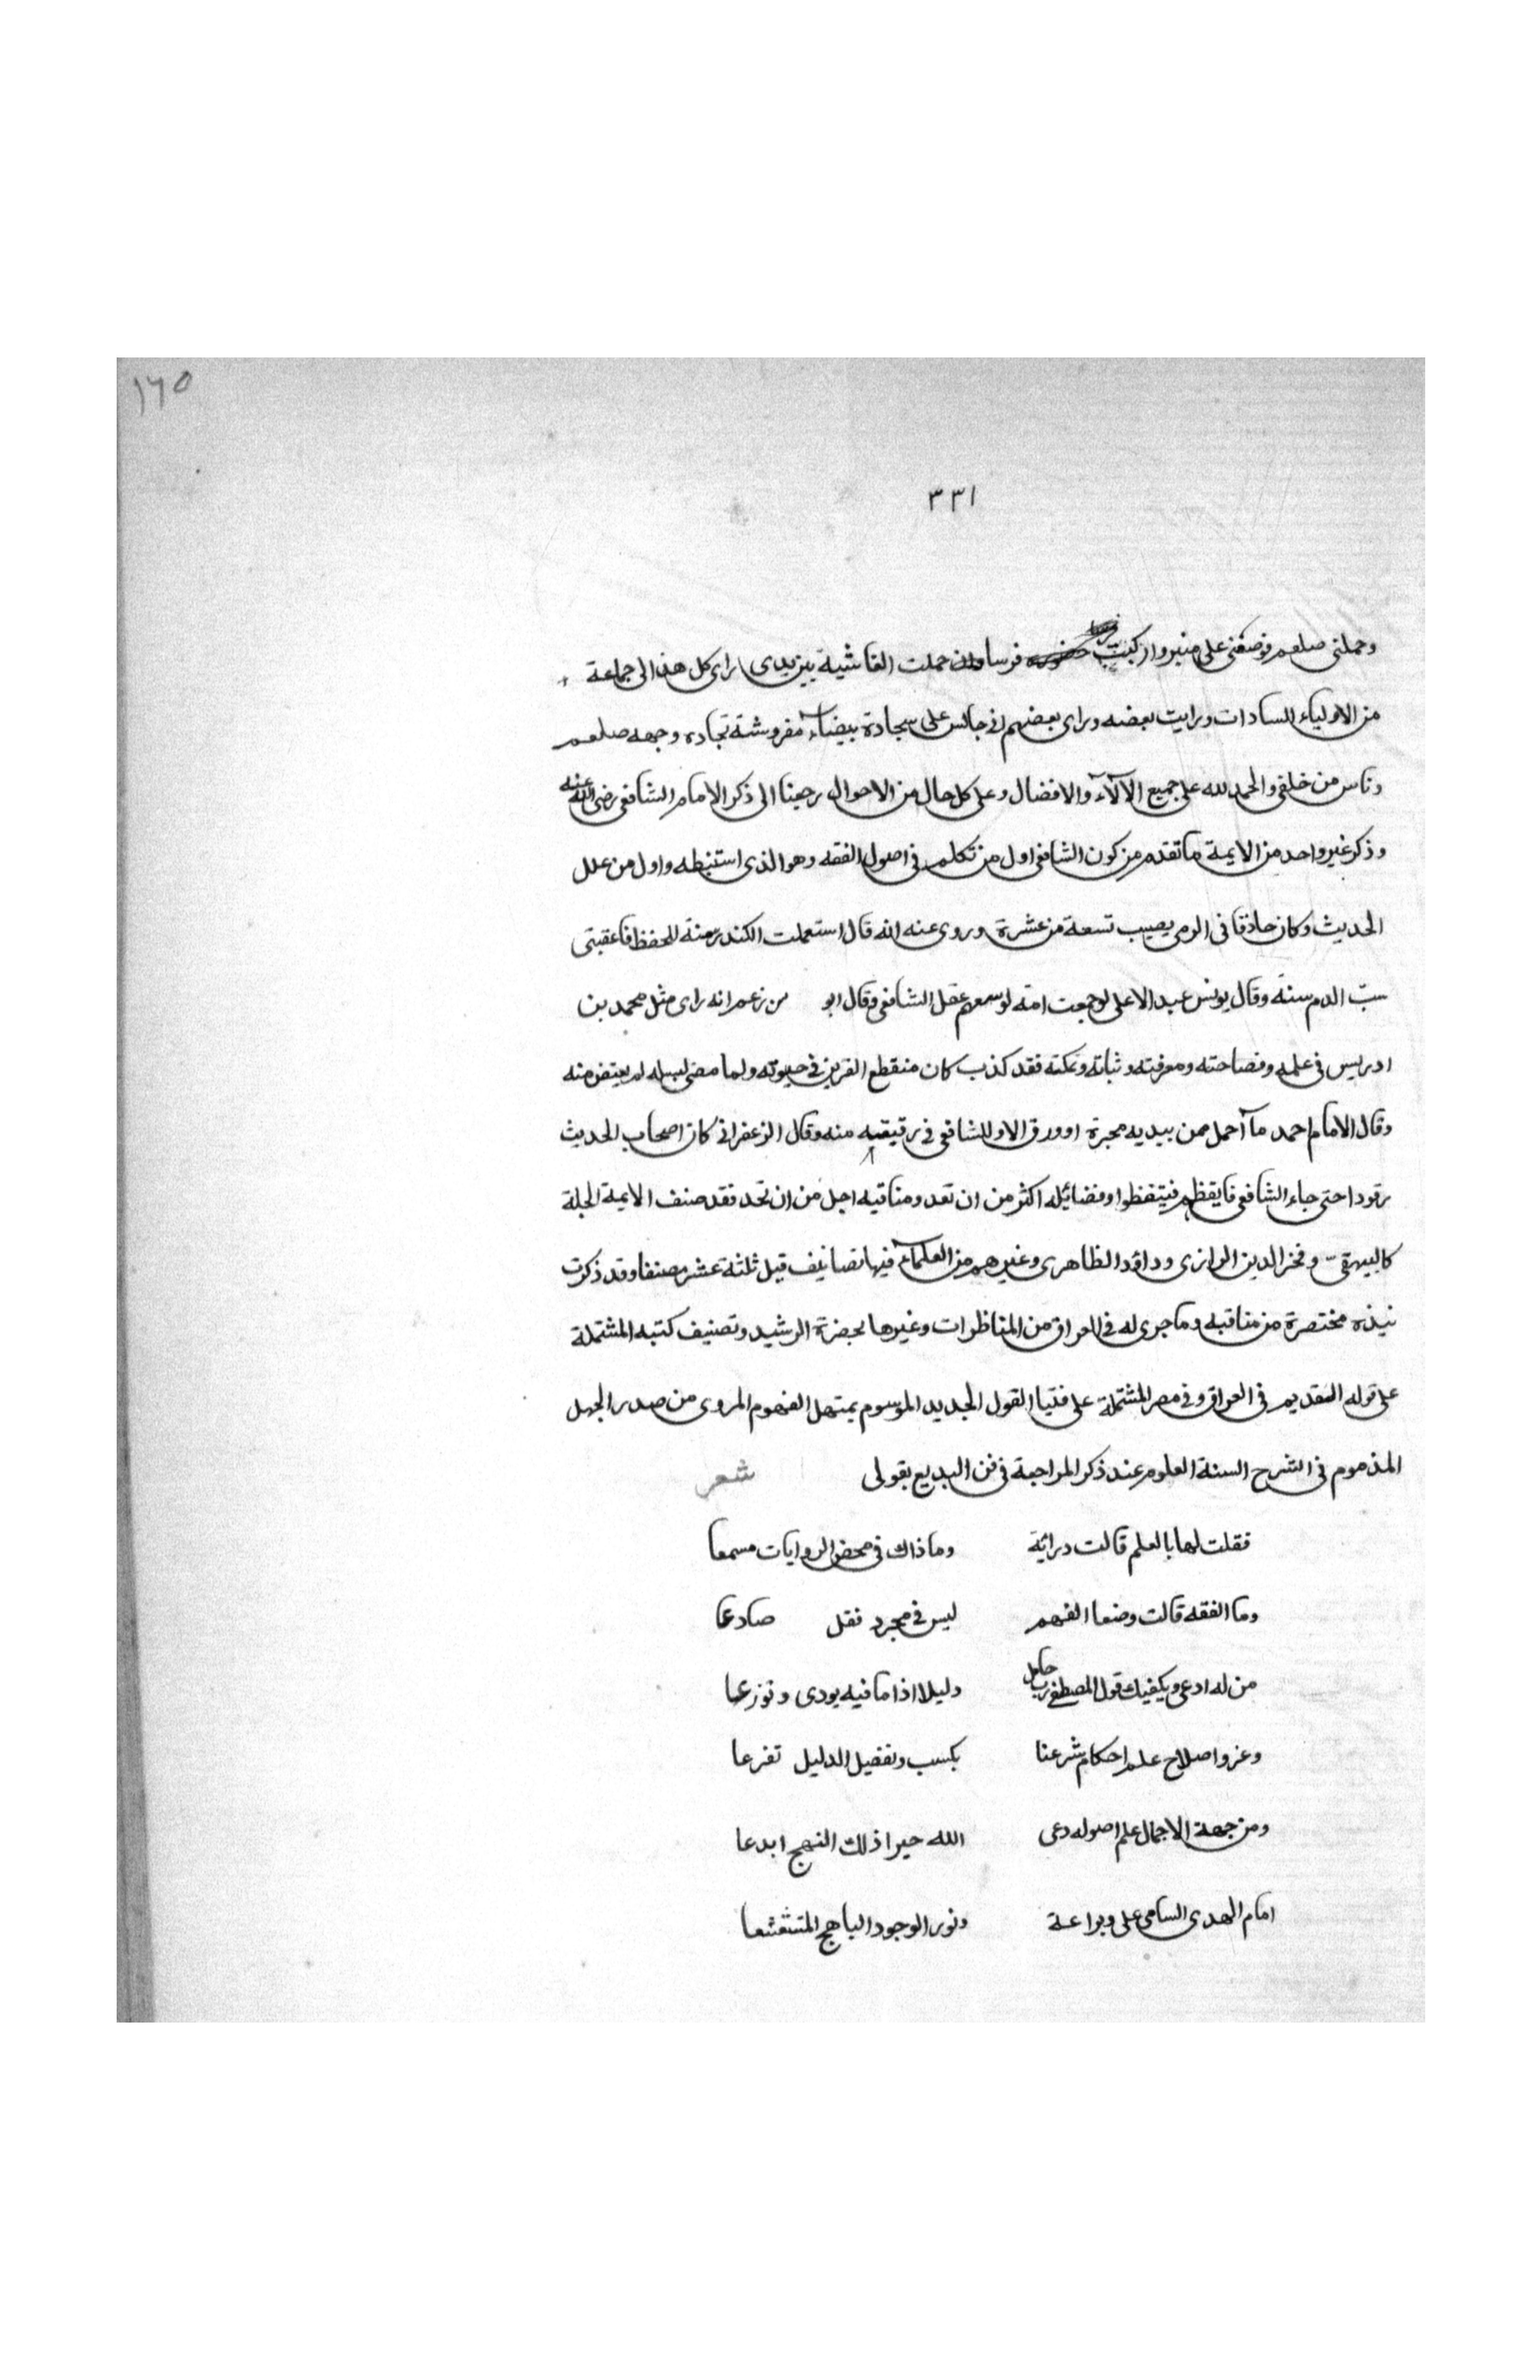 ١٦٥
٣٣١
وحملنى صلعم فوضعنى على منبر واركبت فرسا حملت الغاشية بين يدى راى كل هذا الى جماعة
من الاولياء السادات ورايت بعضه وراى بعضهم انى جالس على سجادة بيضاء مفروشة تجاده وجهه صلعم
وناس من خلقى والحمد لله على جميع الآلآء والافضال وعلى كل حال من الاحوال رجعنا الى ذكر الامام الشافعى رضى الله عنه
وذكر غير واحد من الايمة ما تقدم من كون الشافعى اول من تكلم فى اصول الفقه وهو الذى استنبطه واول من علل
الحديث وكان حاذقا فى الرمى يصيب تسعة من عشرة وروى عنه انه قال استعملت الكندر منة للحفظ فاعقبتى
سبّ الدم سنة وقال يونس عبد الاعلى لو جمعت امة لوسعهم عقل الشافعى وقال ابو من زعم انه راى مثل محمد بن
ادريس فى علمه وفصاحته ومعرفته وثباته وتمكنه فقد كذب كان منقطع القرين فى حيوته ولما مضى لسبيله لم يعتض منه
وقال الامام احمد ما آحمل ممن بيديه محبرة او ورق الا وللشافعى فى رقبته منه وقال الزعفرانى كان اصحاب الحديث
رقودا حتى جاء الشافعى فايقظهم فيتقظوا وفضائيله اكثر من ان تعد ومناقبه اجل من ان تحد فقد صنف الايمة الجلة
كالبيهقى وفخر الدين الرازى وداؤد الظاهرى وغيرهم من العلماء فيها تصانيف قيل ثلثة عشر مصنفا وقد ذكرت
نبذه مختصرة من مناقبه وما جرى له فى العراق من المناظرات وغيرها بحضرة الرشيد وتصنيف كتبه المشتملة
على قوله القديم فى العراق وفى مصر المشتملة على فتيا القول الجديد الموسوم بمنهل الفهوم المروى من صدر الجهل
المذموم فى الشرح السنة العلوم عند ذكر المراجعة فى فن البديع بقولى شعر
فقلت لها بالعلم قالت دراية وما ذاك فى محض الروايات مسمعا
وما الفقه قالت وضعا الفهم ليس فى مجرد نقل صادعا
من له ادعى ويكفيك قول المصطفى رب حامل دليلا اذا ما فيه يودى ونوزعا
وعز واصلاح علم احكام شرعنا بكسب وتفضيل الدليل تفرعا
ومن جهة الاجمال علم اصوله دعى الله حيرا ذلك النهج ابدعا
امام الهدى السامى على وبراعة ونور الوجود الباهج المتشعشعا